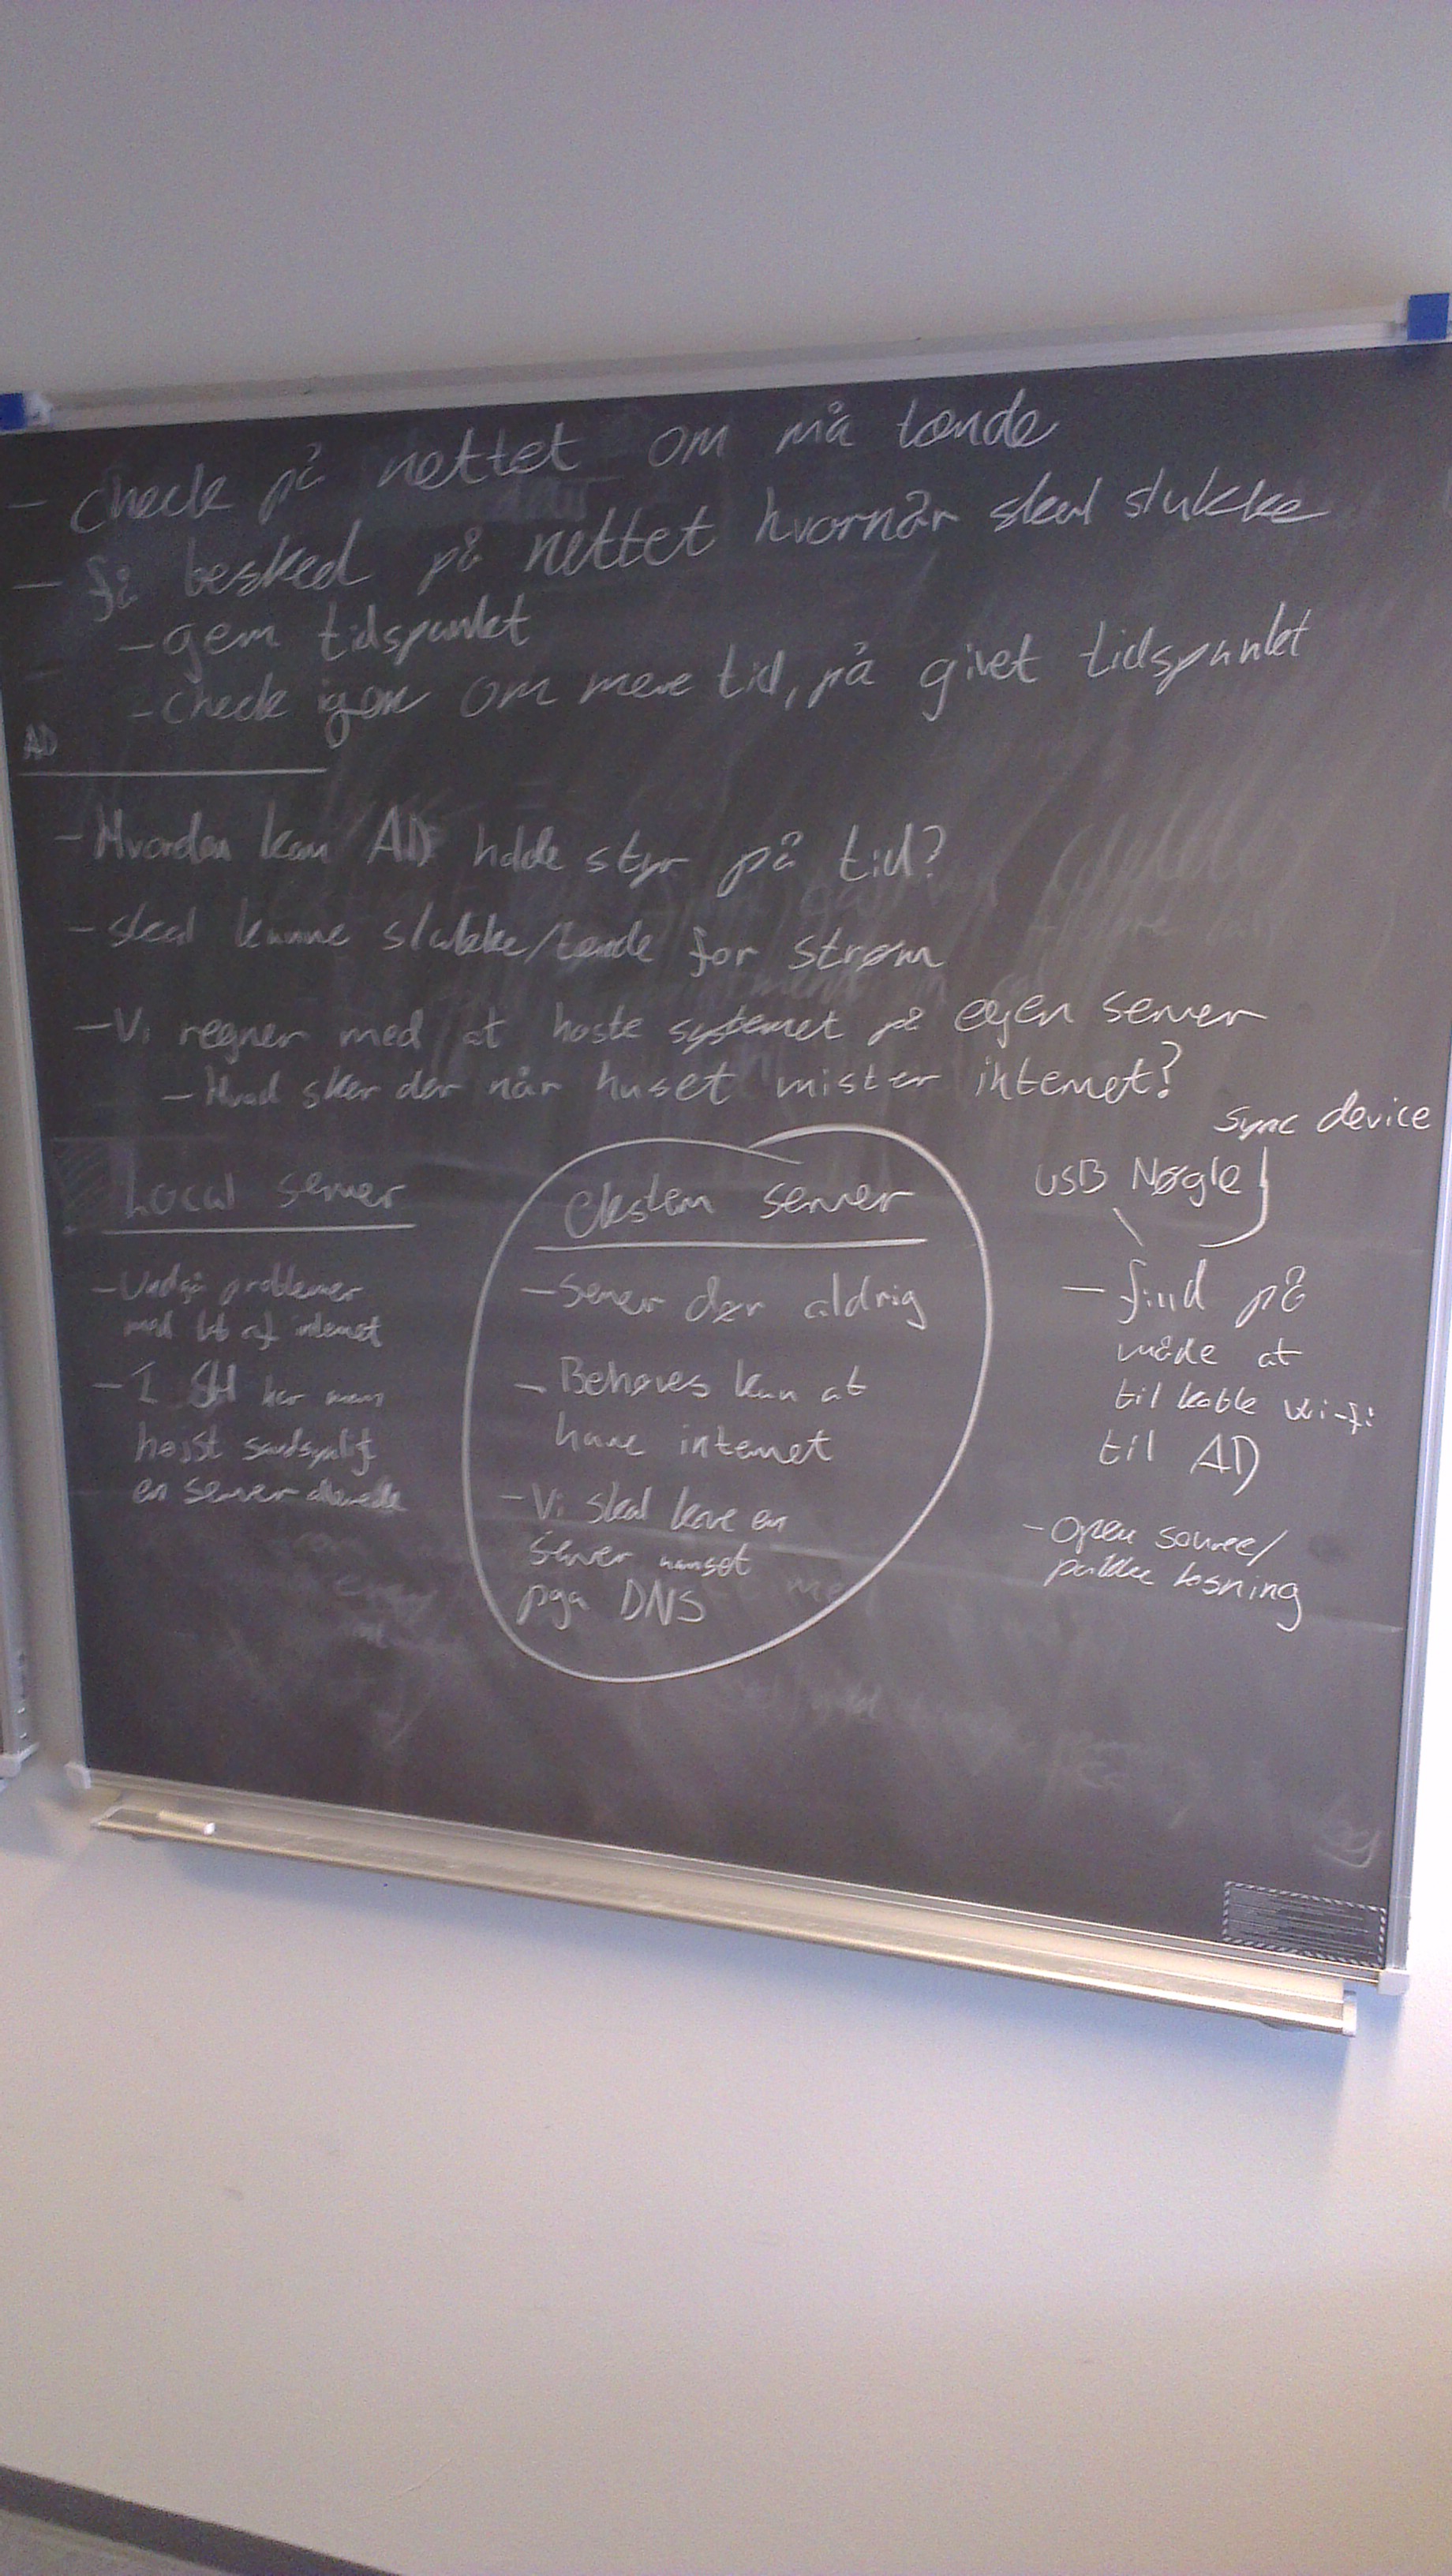 - check på nettet om må tænde
- få besked på nettet hvornår skal slukke
- gem tidspunkt
- check igen om mere tid, på givet tidspunkt
AD
- Hvordan kan AD holde styr på tid?
- skal kunne slukke/tænde for strøm
- Vi regner med at hoste systemet på egen server
- Hvad sker der når huset mister internet?
Local server
- Undgå problemer
med tab af internet
- I SH har man
højst sandsynligt
en server allerede
ekstern server
- Server dør aldrig
- Behøves kun at
have internet
- Vi skal have en
server uanset
pga DNS
sync device
USB Nøgle
- find på
måde at
til koble wi-fi
til AD
- Open source/
pakke løsning